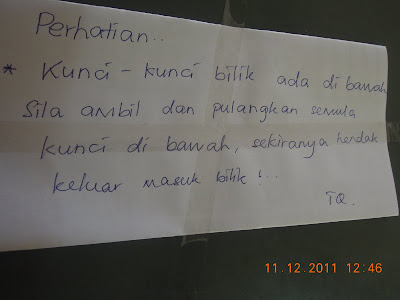 Perhatian..
* Kunci - kunci bilik ada di bawah
Sila ambil dan pulangkan semula
kunci di bawah, sekiranya hendak
keluar masuk bilik !...
TQ.
11.12.2011 12:46